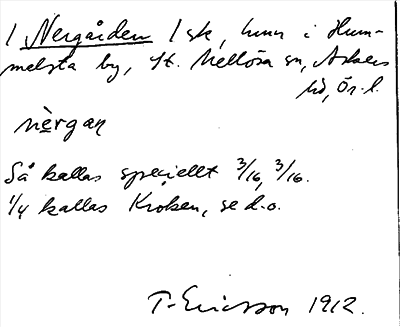 1 Nergården 1 sk, hmn i Hum-
melsta by, St. Mellösa sn, Askers
hd, Ör. l.
nèrgan
Så kallas speciellt 3/16, 3/16.
1/4 kallas Kroken, se d.o.
T. Ericsson 1912.